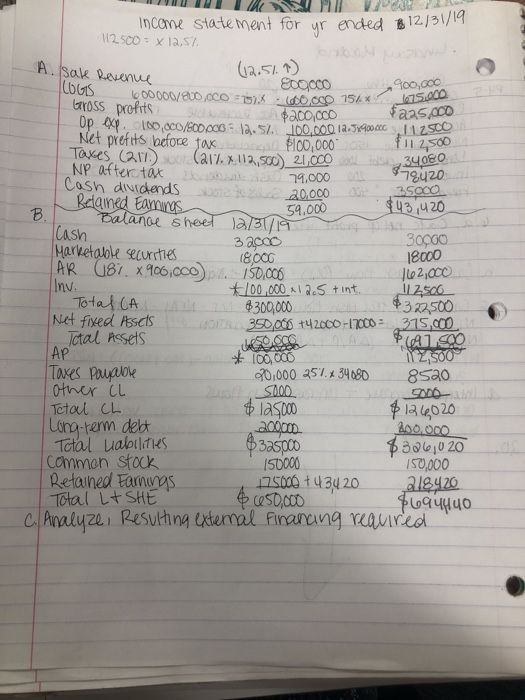 Income Statement for yr ended 12/31/19
112500 = x 12.5%
(12.5% ↑)
A. Sale Revenue 800,000 900,000
COGS 600000/800,000 = 75% x 600,000 75% x 675,000
Gross profits $200,000 $225,000
Op exp. 100,000/800,000 = 12.5% 100,000 12.5%x900000 112500
Net profits before tax $100,000 $112,500
Taxes (21%) (21% x 112,500) 21,000 34080
NP after tax 79,000 $78420
Cash dividends 20,000 35000
Retained Earnings 59,000 $43,420
B. Balance sheet 12/31/19
Cash 32000 30000
Marketable securities 18,000 18000
AR (18% x 900,000) 150,000 162,000
Inv. * 100,000 x 12.5 + int. 112500
Total CA $300,000 $322,500
Net fixed Assets 350,000 +42000-17000 = 375,000
Total Assets 650,000 $697,500
AP * 100,000 112,500
Taxes Payable 20,000 25% x 34080 8520
Other CL 5000 5000
Total CL $125000 $126020
Long-term debt 200000 200,000
Total Liabilities $325000 $326,020
Common stock 150000 150,000
Retained Earnings 175000 +43,420 218420
Total L+SHE $650,000 $694440
C. Analyze, Resulting external Financing required